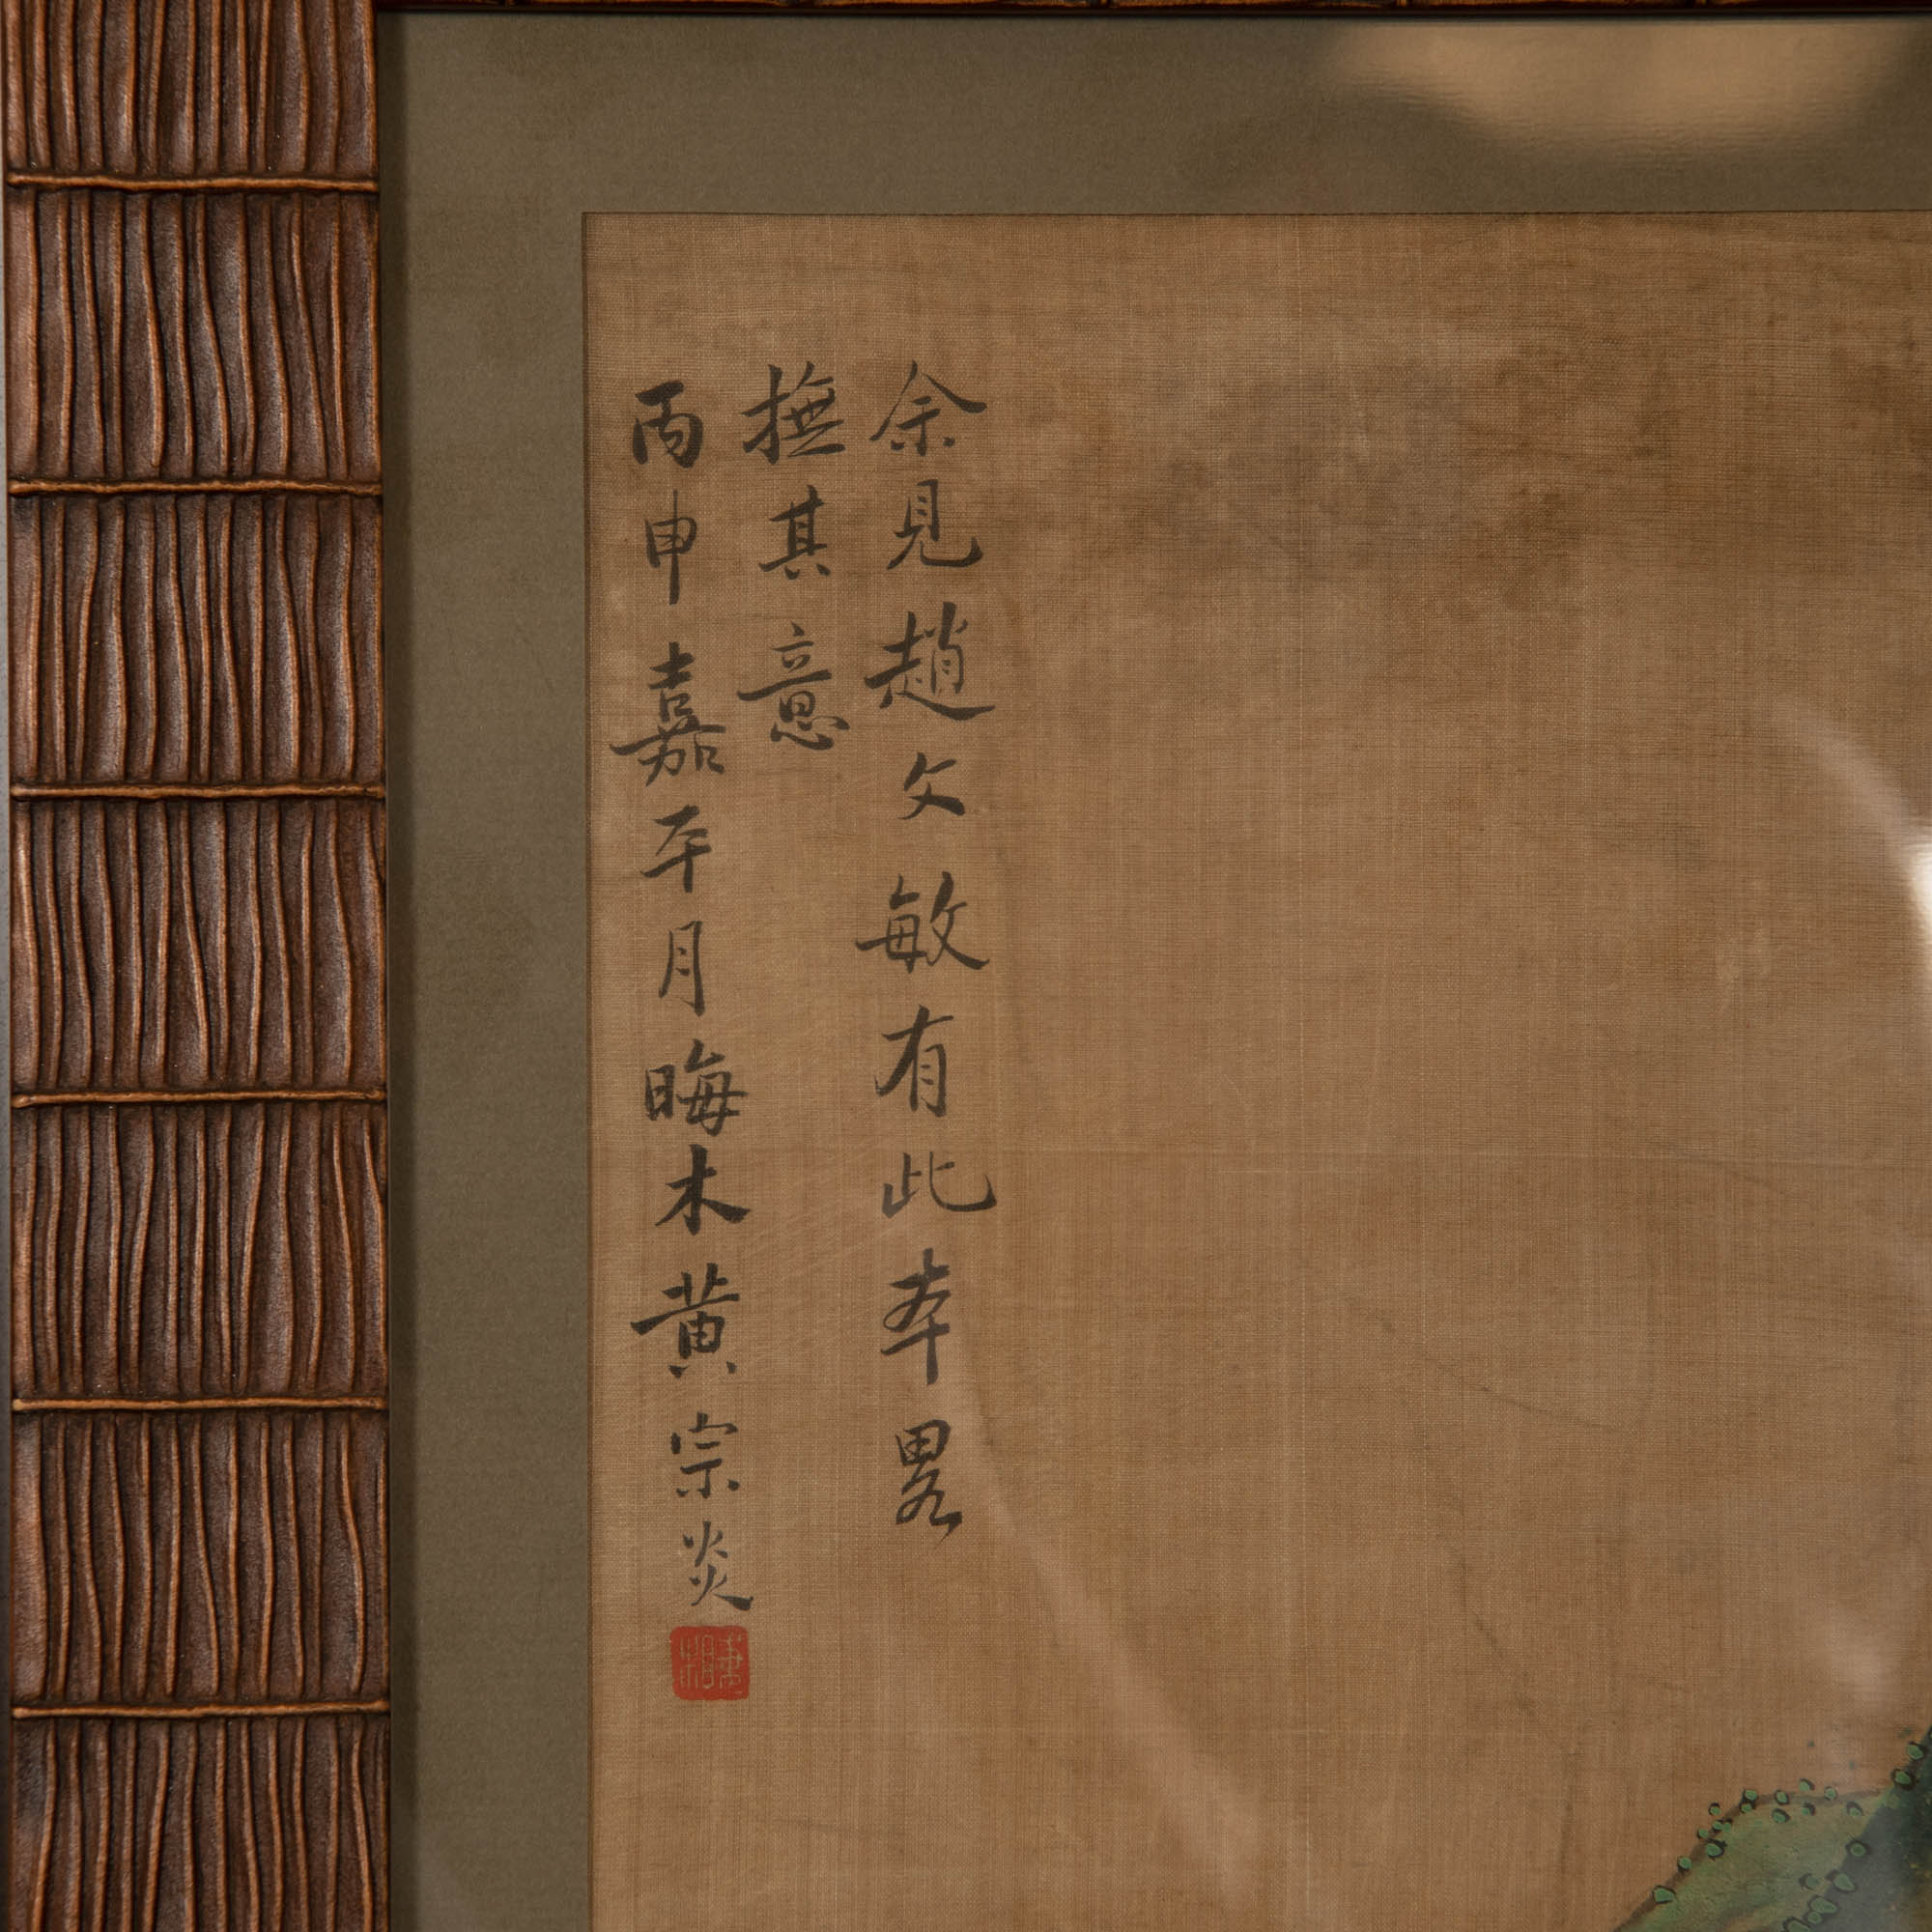 余見趙文敏有此本畧
撫其意
丙申嘉平月晦木黄宗炎